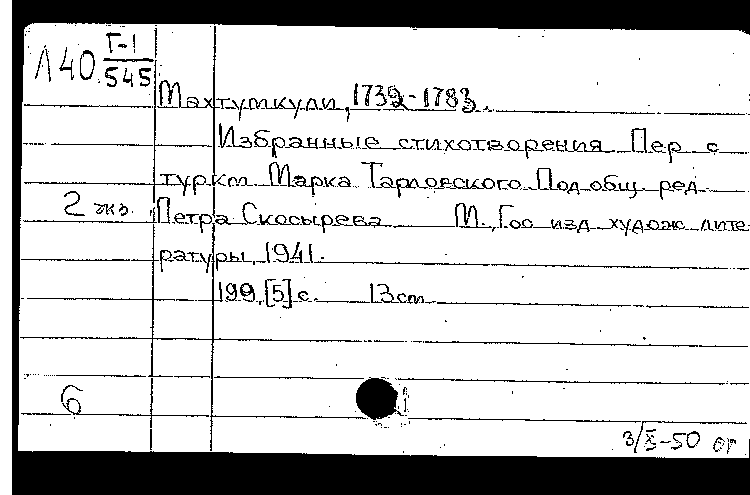 Л40. Г-1/545
Махтумкули, 1732-1783.
Избранные стихотворения Пер с
туркм Марка Тарловского Под общ. ред.
2 экз. Петра Скосырева М., Гос изд худож лите
ратуры, 1941.
199, [5] с. 13 см
6
3/X-50 ог